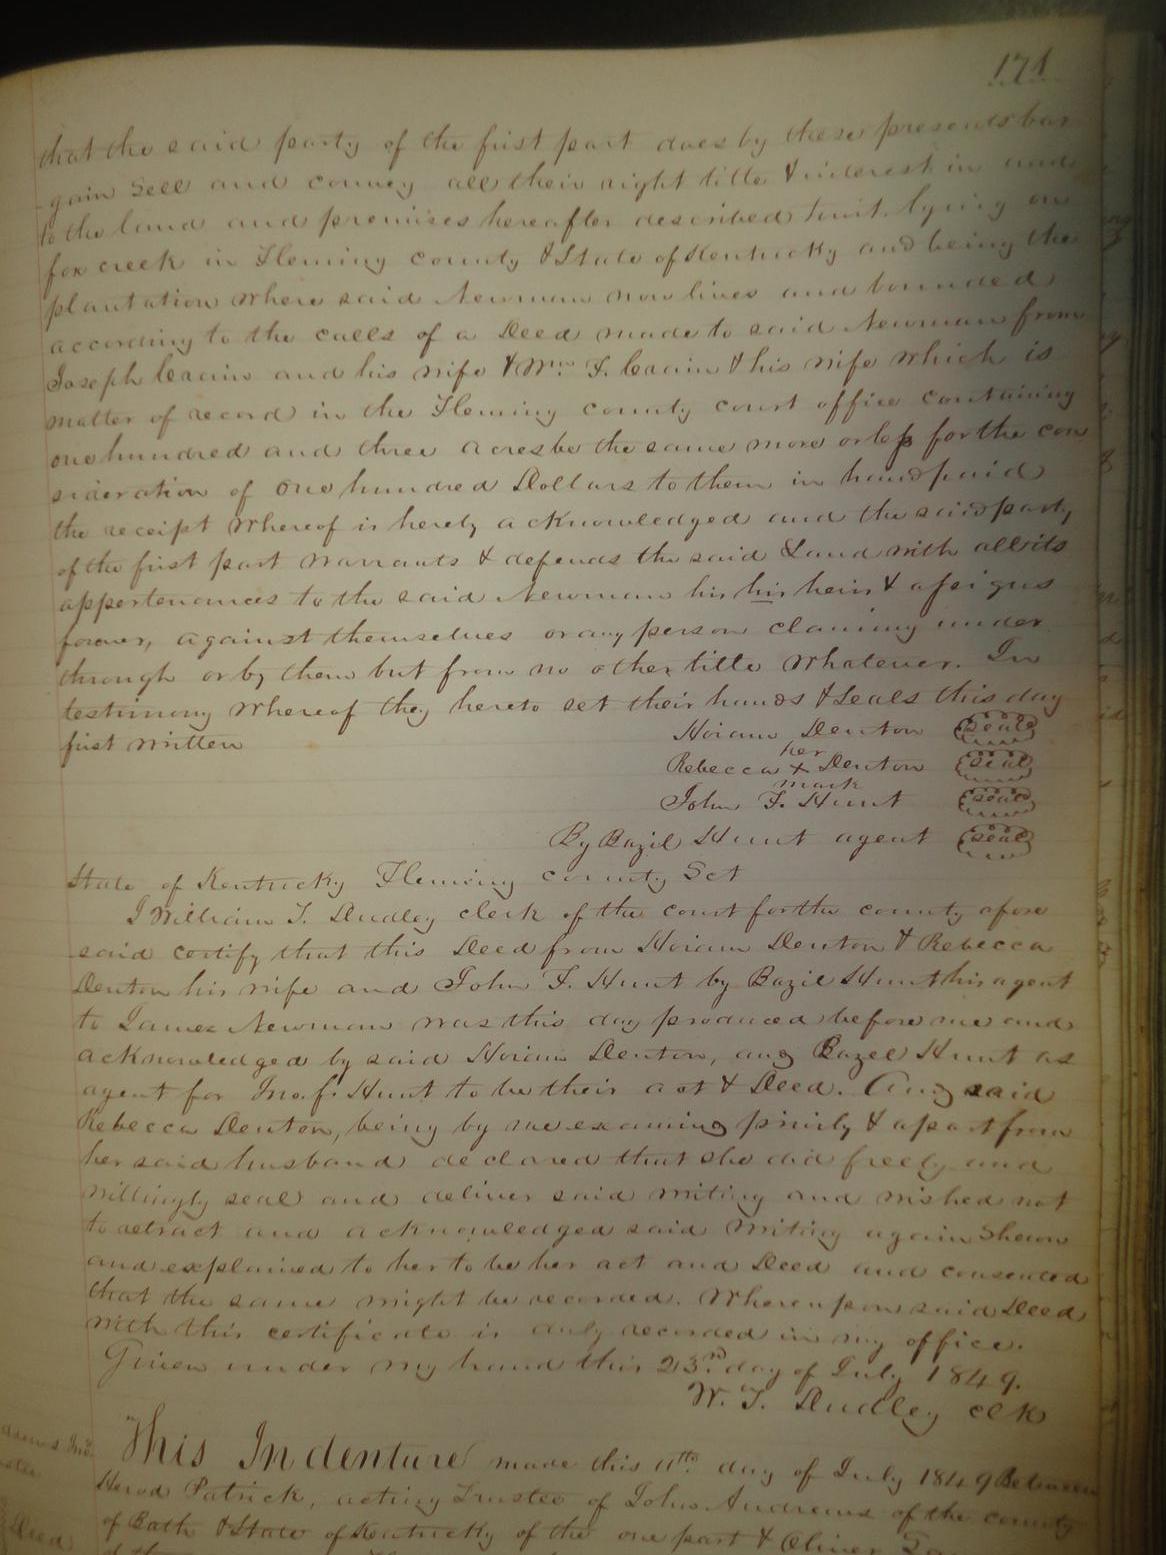 171
that the said party of the first part does by these presents bar
gain Sell and convey all their right title & interest in and
to the land and premises hereafter described towit. lying on
fox creek in Fleming county & State of Kentucky and being the
plantation where said Newman now lives and bounded
according to the calls of a Deed made to said Newman from
Joseph Crain and his wife & Wm. F. Crain & his wife which is
matter of record in the Fleming county court office containing
one hundred and three acres be the same more or less for the con
sideration of One hundred Dollars to them in hand paid
the receipt whereof is hereby acknowledged and the said party
of the first part warrants & defends the said Land with all its
appertenances to the said Newman his his heirs & assigns
forever, against themselves or any person claiming under
through or by them but from no other title whatever. In
testimony whereof they hereto set their hands & Seals this day
first written
Hiram Denton seal
her
Rebecca X Denton seal
mark
John F. Hunt seal
By Bazil Hunt agent seal
State of Kentucky Fleming county Sct
I William T. Dudley clerk of the court for the county afore
said certify that this Deed from Hiram Denton & Rebecca
Denton his wife and John F. Hunt by Bazil Hunt his agent
to James Newman was this day produced before me and
acknowledged by said Hiram Denton, and Bazel Hunt as
agent for Jno. f. Hunt to be their act & Deed. And said
Rebecca Denton, being by me examined privily & apart from
her said husband declared that she did freely and
willingly seal and deliver said writing and wished not
to retract and acknowledged said writing again Shewn
and explained to her to be her act and Deed and consented
that the same might be recorded. Whereupon said Deed
with this certificate is duly recorded in my office.
Given under my hand this 23rd day of July 1849.
W. T. Dudley clk
This Indenture made this 11th day of July 1849 Between
Herod Patrick, acting Trustee of John Andrews of the county
of Bath & State of Kentucky of the one part & Oliver
Deed